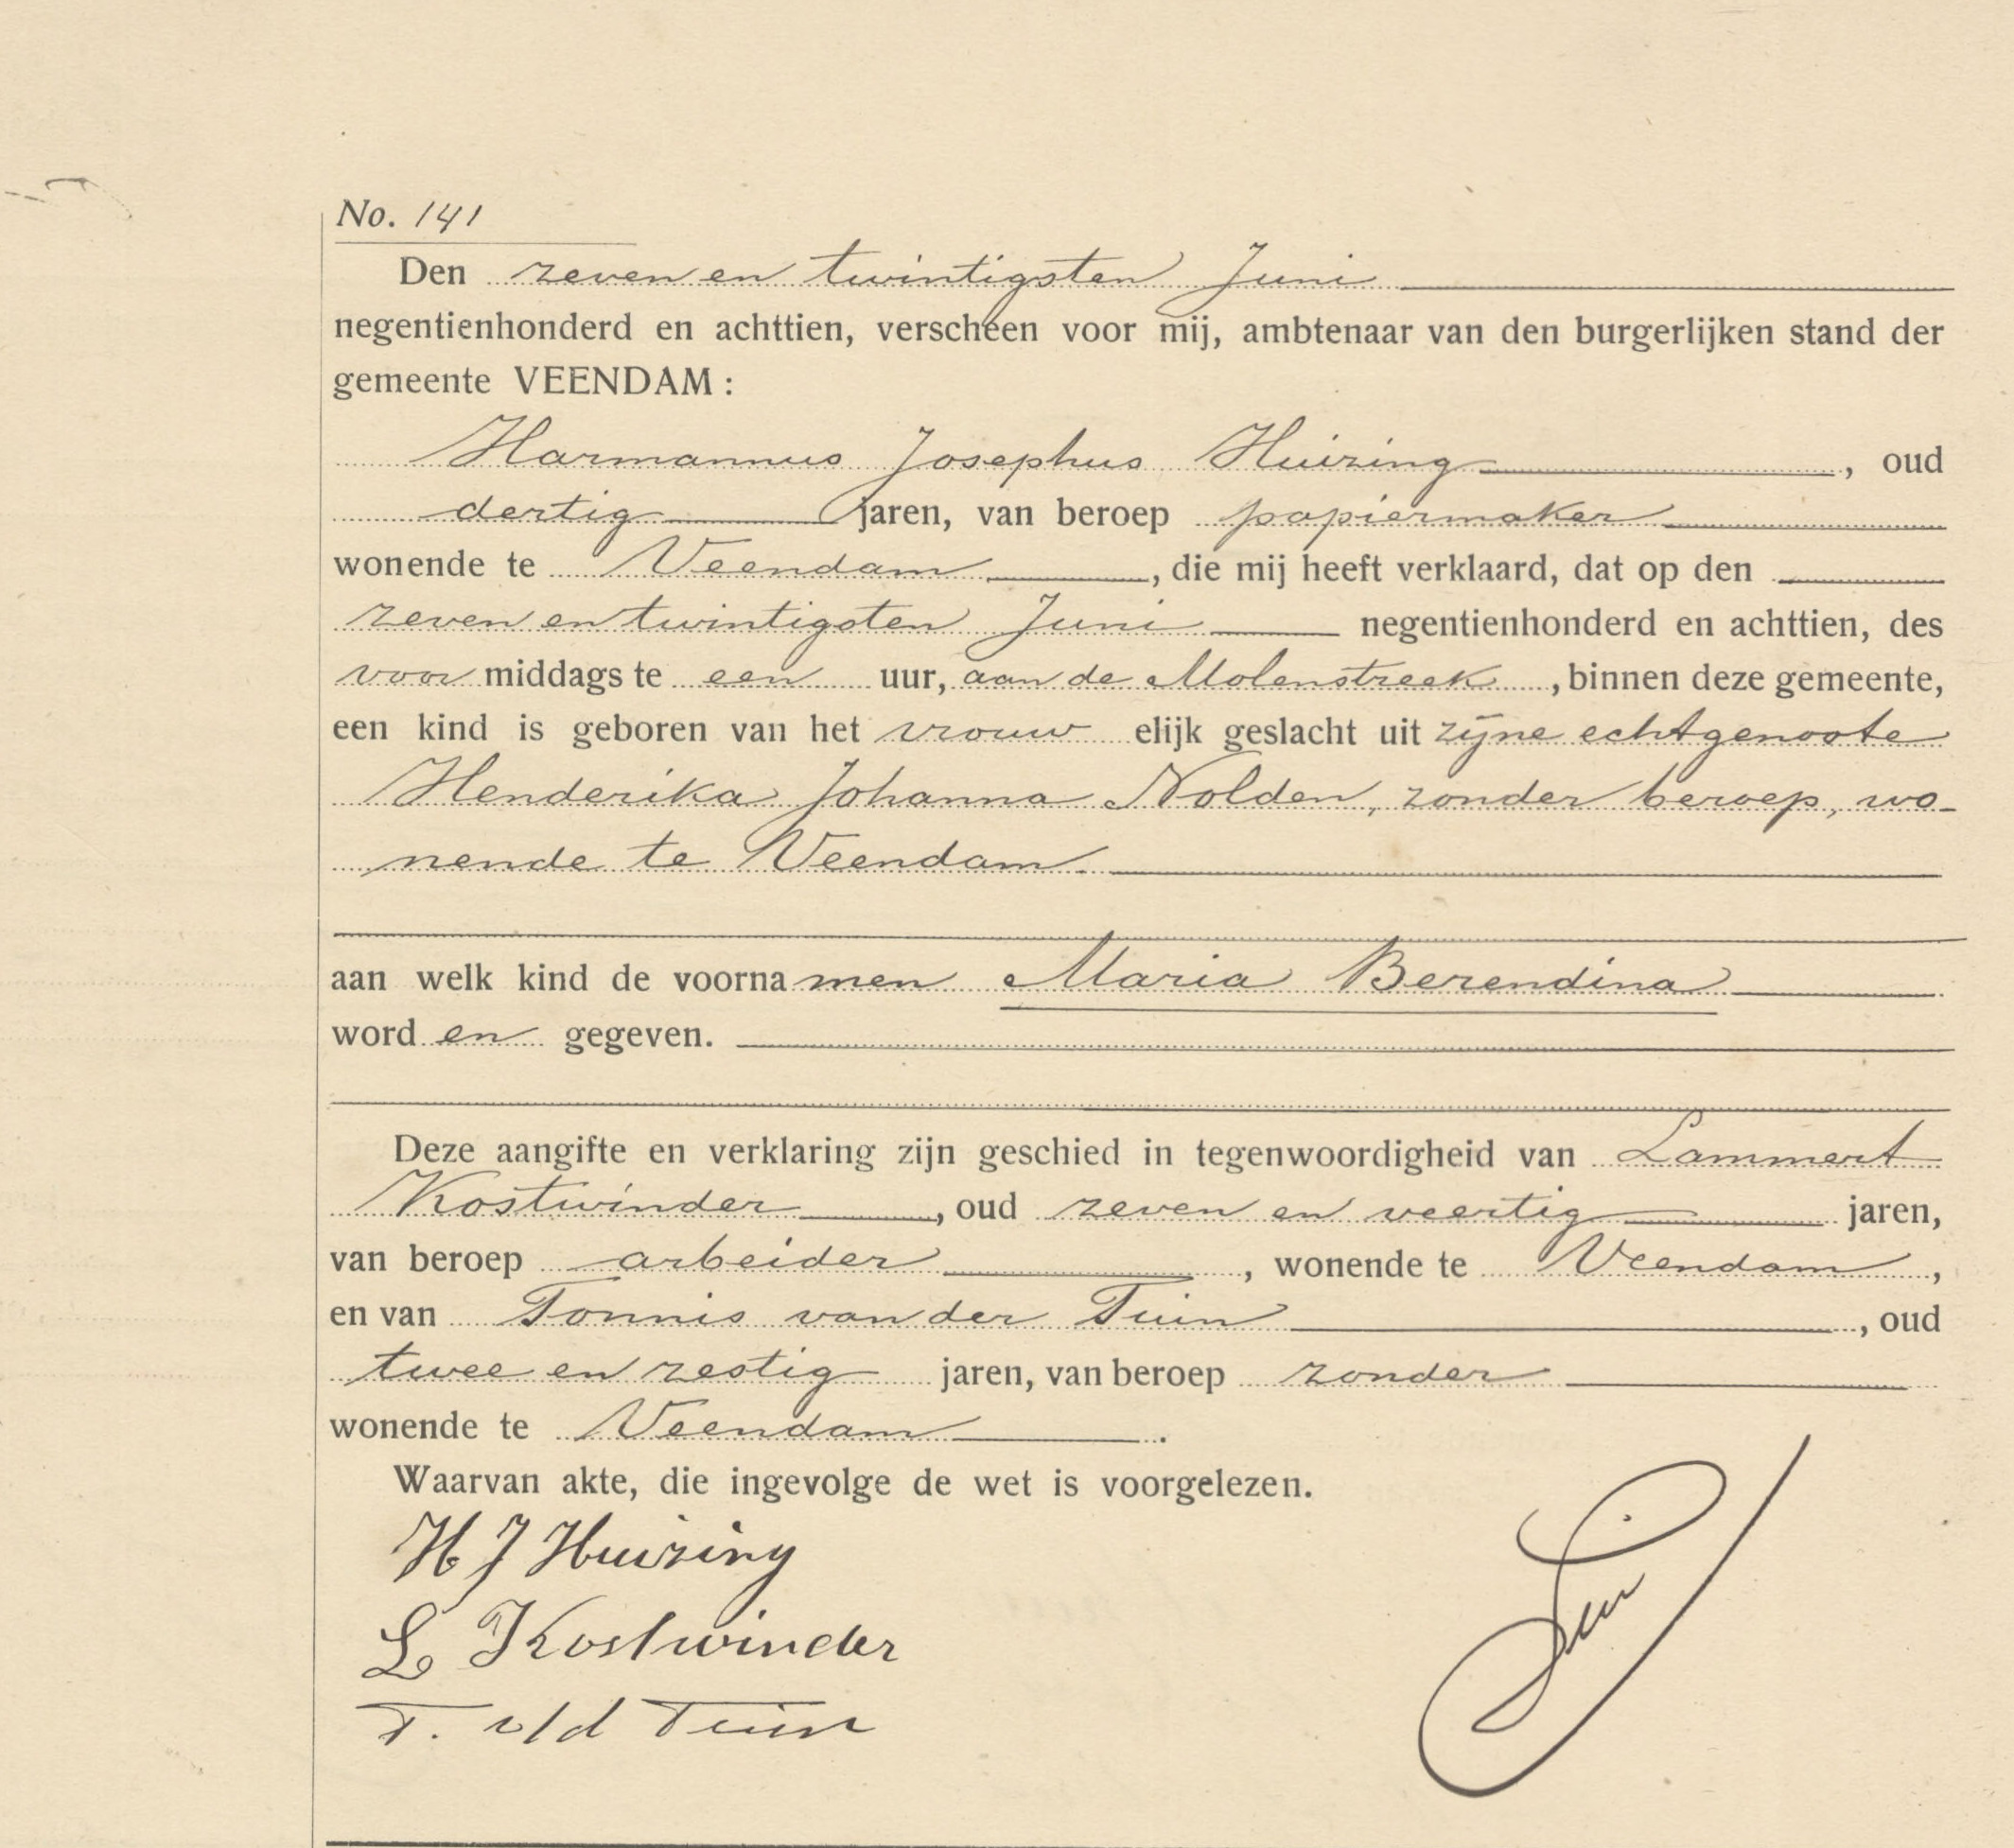 No. 141
Den zeven en twintigsten Juni
negentienhonderd en achttien, verscheen voor mij, ambtenaar van den burgerlijken stand der
gemeente VEENDAM:
Harmannus Josephus Huizing, oud
dertig jaren, van beroep papiermaker
wonende te Veendam, die mij heeft verklaard, dat op den
zeven en twintigsten Juni negentienhonderd en achttien, des
voor middags te een uur, aan de Molenstreek, binnen deze gemeente,
een kind is geboren van het vrouw elijk geslacht uit zijne echtgenoote
Henderika Johanna Nolden, zonder beroep, wo-
nende te Veendam
aan welk kind de voorna men Maria Berendina
word en gegeven.
Deze aangifte en verklaring zijn geschied in tegenwoordigheid van Lammert
Kostwinder, oud zeven en veertig jaren,
van beroep arbeider, wonende te Veendam,
en van Tonnis van der Tuin, oud
twee en zestig jaren, van beroep zonder
wonende te Veendam.
Waarvan akte, die ingevolge de wet is voorgelezen.
H J Huizing
L Kostwinder
T. v/d Tuin